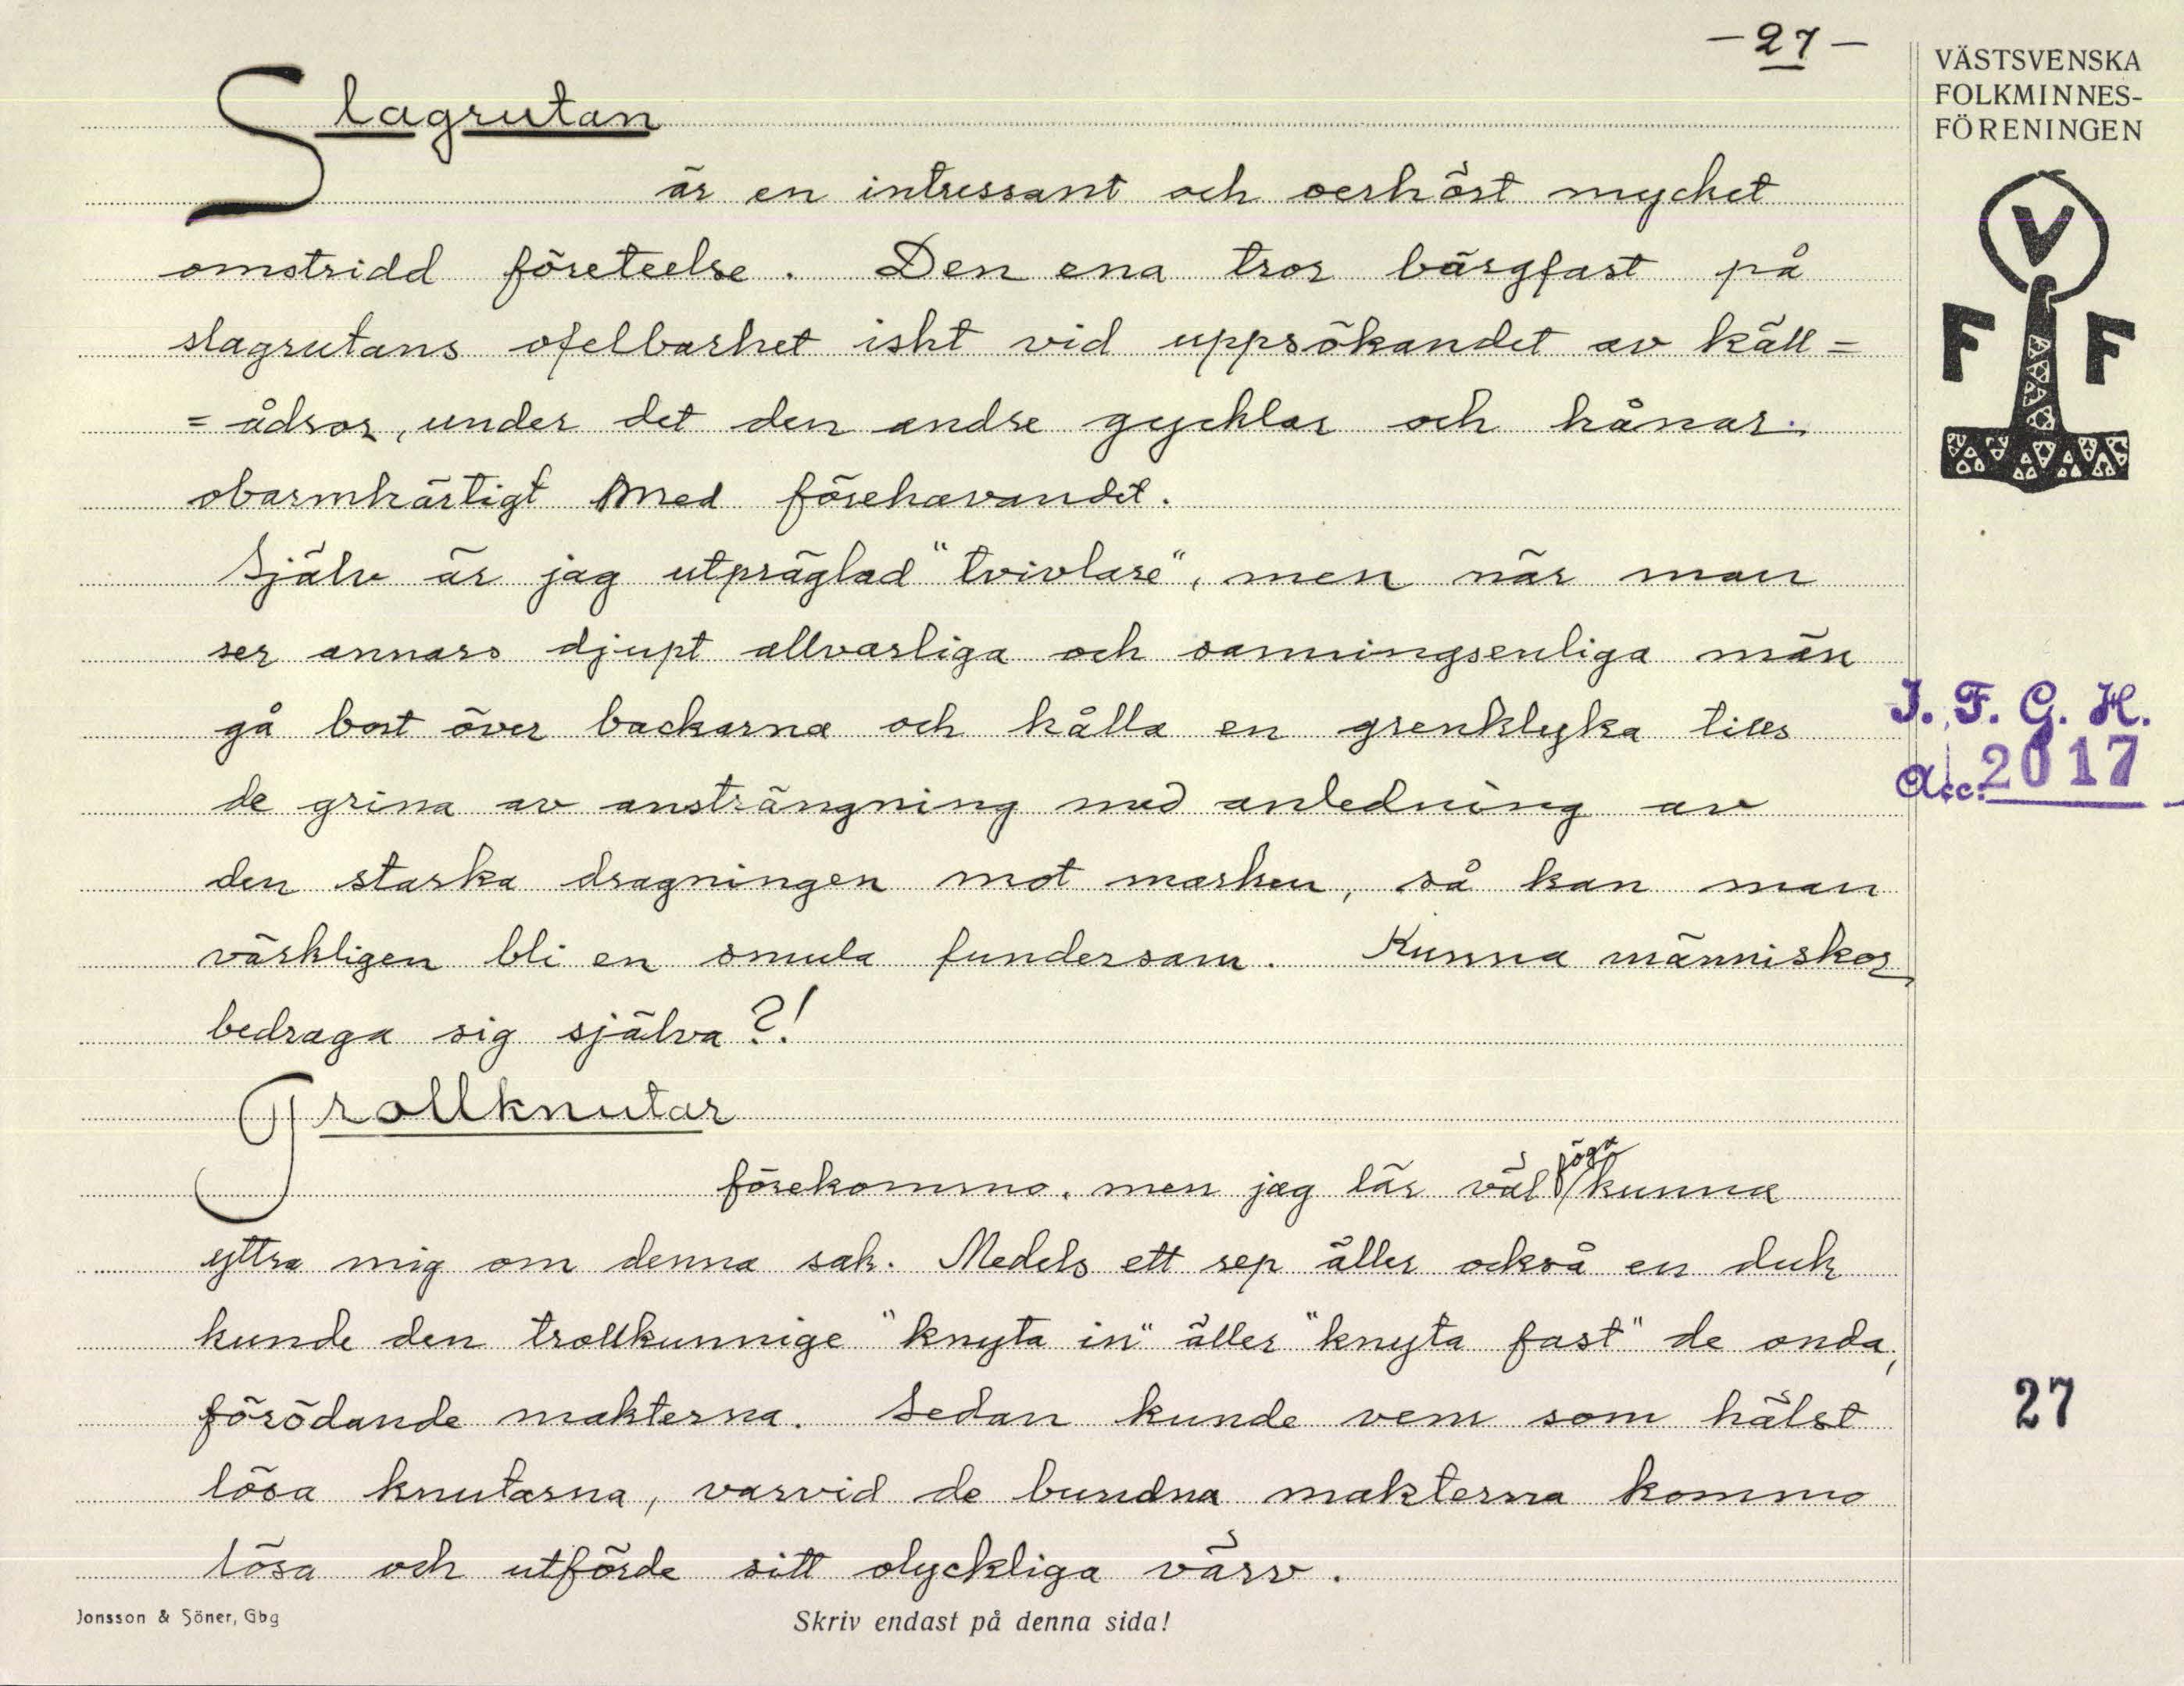 -27-
VÄSTSVENSKA
FOLKMINNES-
FÖRENINGEN
Slagrutan
är en intressant och oerhört mycket
omstridd företeelse. Den ena tror bärgfast på
slagrutans ofelbarhet iskt vid uppsökandet av käll=
=ådror, under det den andre gycklar och hånar
obarmhärtigt med förehavandet.
Själv är jag utpräglad "tvivlare", men när man
ser annars djupt allvarliga och sanningsenliga män
gå bort över backarna och hålla en grenklyka tills
de grina av ansträngning med anledning av
den starka dragningen mot marken, så kan man
värkligen bli en smula fundersam. Kunna människor
bedraga sig själva?!
Trollknutar
förekommo, men jag lär väl föga kunna
yttra mig om denna sak. Medels ett rep äller också en duk
kunde den trollkunnige "knyta in" äller "knyta fast" de onda,
förödande makterna. Sedan kunde vem som hälst
lösa knutarna, varvid de bundna makterna kommo
lösa och utförde sitt olyckliga värv.
V
F F
I. F. G. H.
Acc. 2017
27
Jonsson & Söner, Gbg
Skriv endast på denna sida!